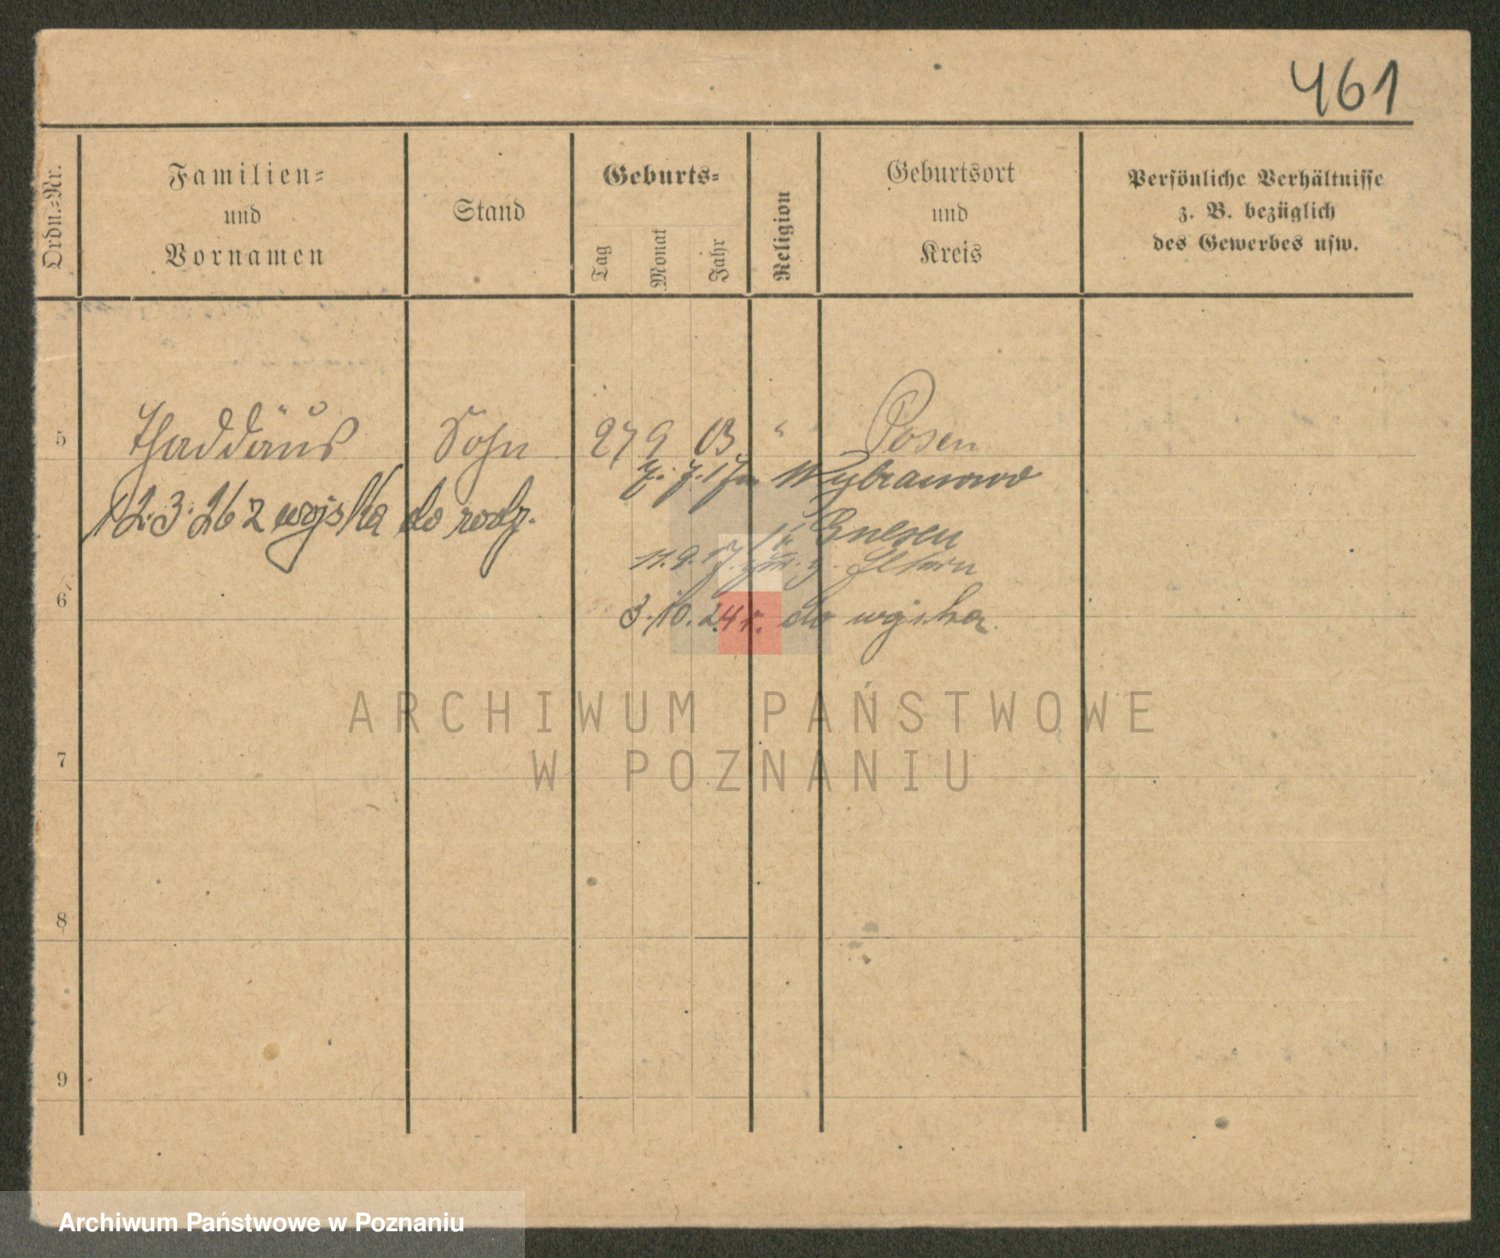 461
Ordn.-Nr.
Familien-
und
Vornamen
Stand
Geburts-
Tag
Monat
Jahr
Religion
Geburtsort
und
Kreis
Persönliche Verhältnisse
z. B. bezüglich
des Gewerbes usw.
5 Thaddäus Sohn 27 9 03 " Posen
7. 17 Wybranowo
12.3.26 z wojska do rodz.
Gnesen
11.9.17 z. Eltern
6
3.10.24 r. do wojska
ARCHIWUM PAŃSTWOWE
W POZNANIU
7
8
9
Archiwum Państwowe w Poznaniu